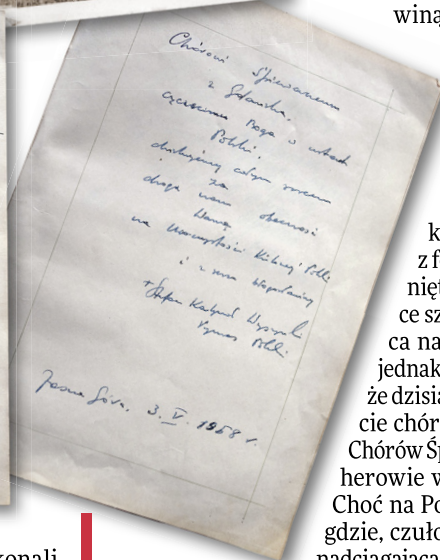 winą
Chórowi Śpiewaczemu
z Gdańska,
czczącemu Boga i
Polski,
dziękujemy całym sercem
za
drogą nam obecność
Waszą
na Uroczystości Królowej Polski
i z serca błogosławimy
+ Stefan Kardynał Wyszyński
Prymas Polski.
Jasna Góra, 3. V. 1958 r.
k
z f
nięt
ce sz
ca na
jednak
że dzisia
cie chór
Chórów Śp
herowie w
Choć na Po
gdzie, czuło
nadciągająca
konali